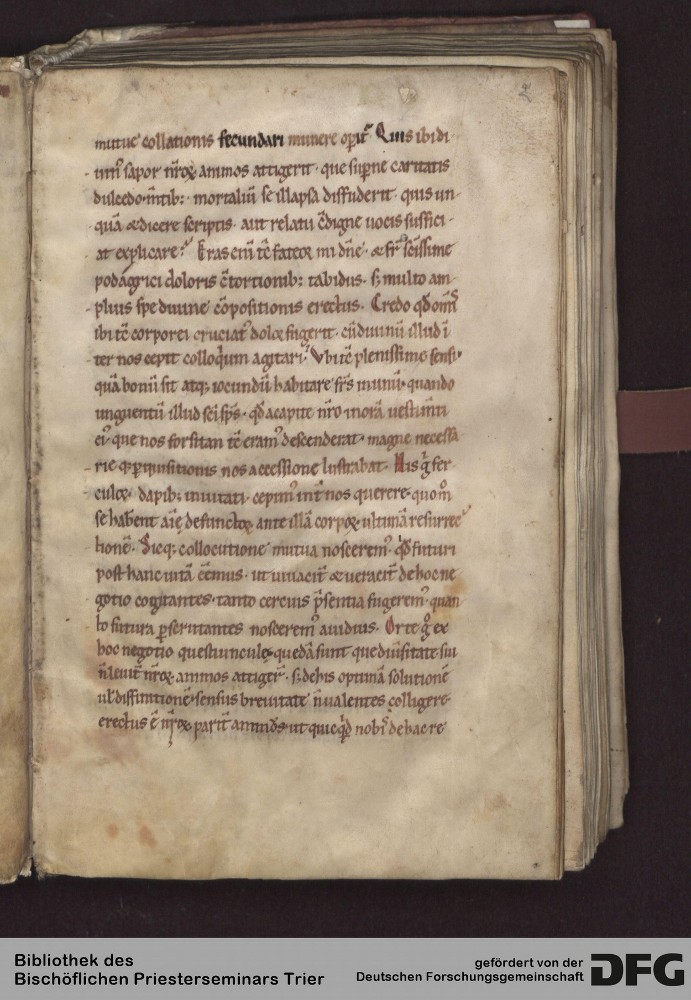 2
mutuę collationis fecundari munere oportet Quis ibi di
uinus sapor nr̄oꝝ animos attigerit · que sup̄ne caritatis
dulcedo m̄tib; mortaliū se illapsa diffuderit · quis un
quā & dicere scriptis · aut relatu c̄digne uocis suffici
at explicare? Eras eni tc̄ fateor mi dn̄e · & fr̄ sc̄issime
podagrici doloris c̄tortionib; tabidus · s; multo am
plius spe diuine c̄positionis erectus · Credo qd om̄s
ibi tc̄ corporei cruciat᷒ dolor fugerit · cū diuinū illud ī
ter nos cepit colloqium agitari · Vbi tc̄ plenissime sensi
quā bonū sit atq; iocundū habitare fr̄s in unū · quando
unguentū illud sc̄i sp̄s · qd a capite nr̄o in orā uestim̄ti
ei᷒ · que nos forsitan tc̄ eram᷒ descenderat · magne necessa
rie q; perquisitionis nos accessione lustrabat · His g̊ fer
culoꝝ dapib; inuitati · cepim᷒ int̄ nos querere · quom̊
se habent aīe defunctoꝝ ante illā corpoꝝ ultimā resurrec
tionē · Sicq; collocutione mutua noscerem᷒ · qd futuri
post hanc uitā c̄rmus · ut uiuacit̄ & ueracit̄ de hoc ne
gotio cogitantes · tanto cercius p̄sentia fugerem᷒ · quan
to futura pscrutantes noscerem᷒ auidius · Orte g̊ ex
hoc negotio questiuncule · quedā sunt que diuersitate sui
n̄ leuit̄ nr̄oꝝ animos attiger̄ · s; de his optimā solutionē
ul̄ diffinitionē · sensus breuitate n̄ ualentes colligere
erectus ē nr̄oꝝ parit̄ animos ut quicqd nobis de hac re
Bibliothek des
Bischöflichen Priesterseminars Trier
gefördert von der
Deutschen Forschungsgemeinschaft
DFG